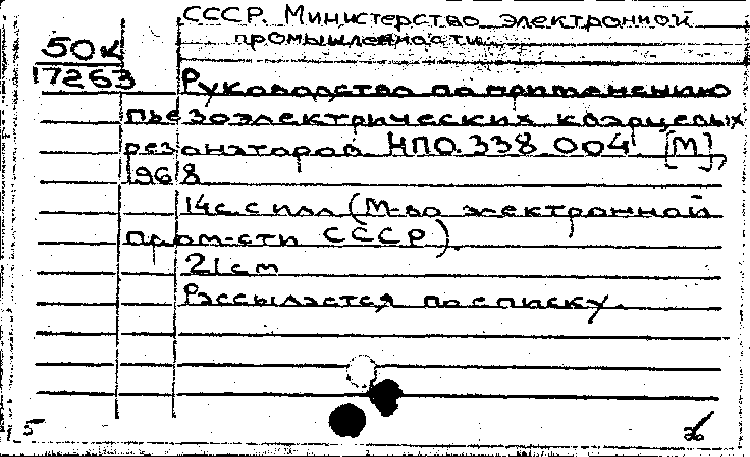 СССР. Министерство электронной
промышленности.
50к
17263
Руководство по применению
пьезоэлектрических кварцевых
резонаторов НПО.338.004 [М],
1968
14с. с илл (М-во электронной
пром-сти СССР).
21см
Рассылается по списку.
5